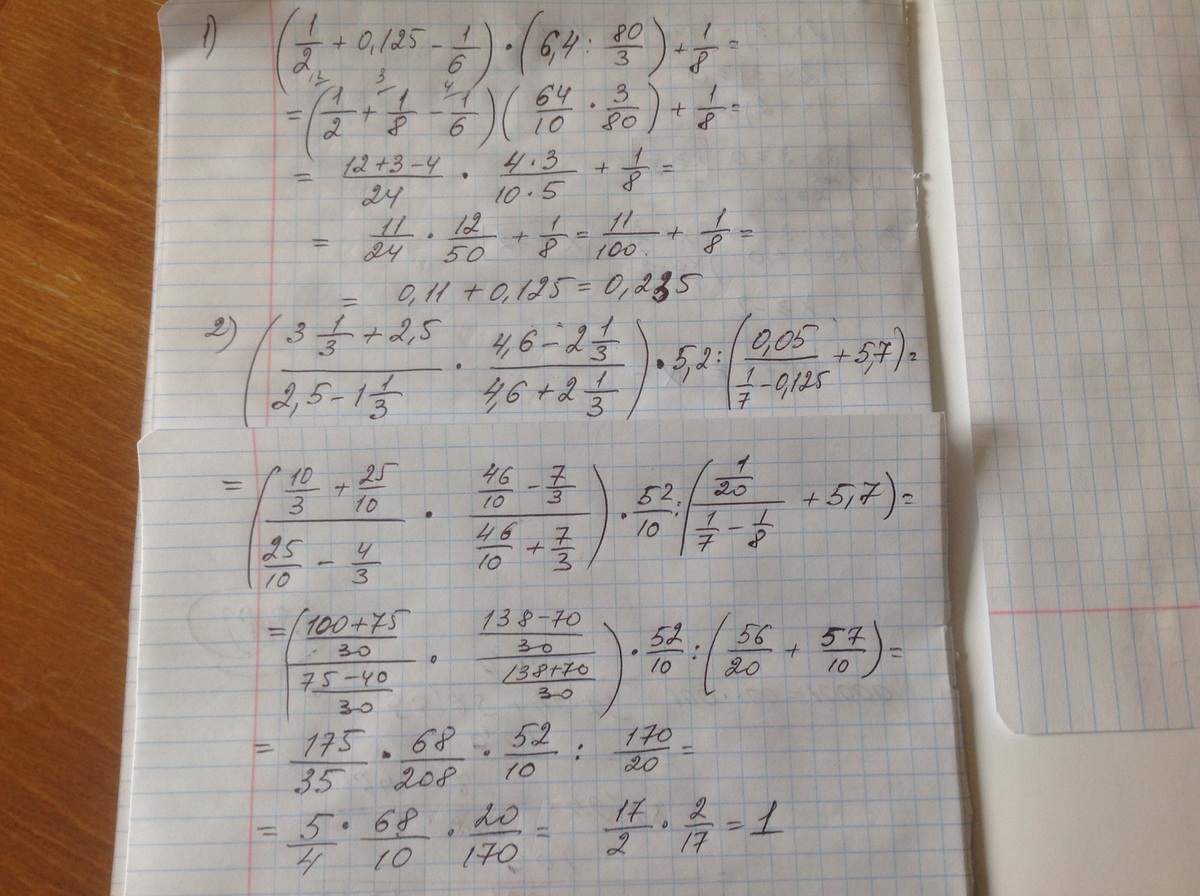 1) (1/2 + 0,125 - 1/6) · (6,4 : 80/3) + 1/8 =
12 3 4
= (1/2 + 1/8 - 1/6)(64/10 · 3/80) + 1/8 =
= (12+3-4)/24 · (4·3)/(10·5) + 1/8 =
= 11/24 · 12/50 + 1/8 = 11/100 + 1/8 =
= 0,11 + 0,125 = 0,235
2) ((3 1/3 + 2,5)/(2,5 - 1 1/3) · (4,6 - 2 1/3)/(4,6 + 2 1/3)) · 5,2 : (0,05/(1/7 - 0,125) + 5,7) =
= ((10/3 + 25/10)/(25/10 - 4/3) · (46/10 - 7/3)/(46/10 + 7/3)) · 52/10 : ((1/20)/(1/7 - 1/8) + 5,7) =
= (((100+75)/30)/((75-40)/30) · ((138-70)/30)/((138+70)/30)) · 52/10 : (56/20 + 57/10) =
= 175/35 · 68/208 · 52/10 : 170/20 =
= 5/4 · 68/10 · 20/170 = 17/2 · 2/17 = 1